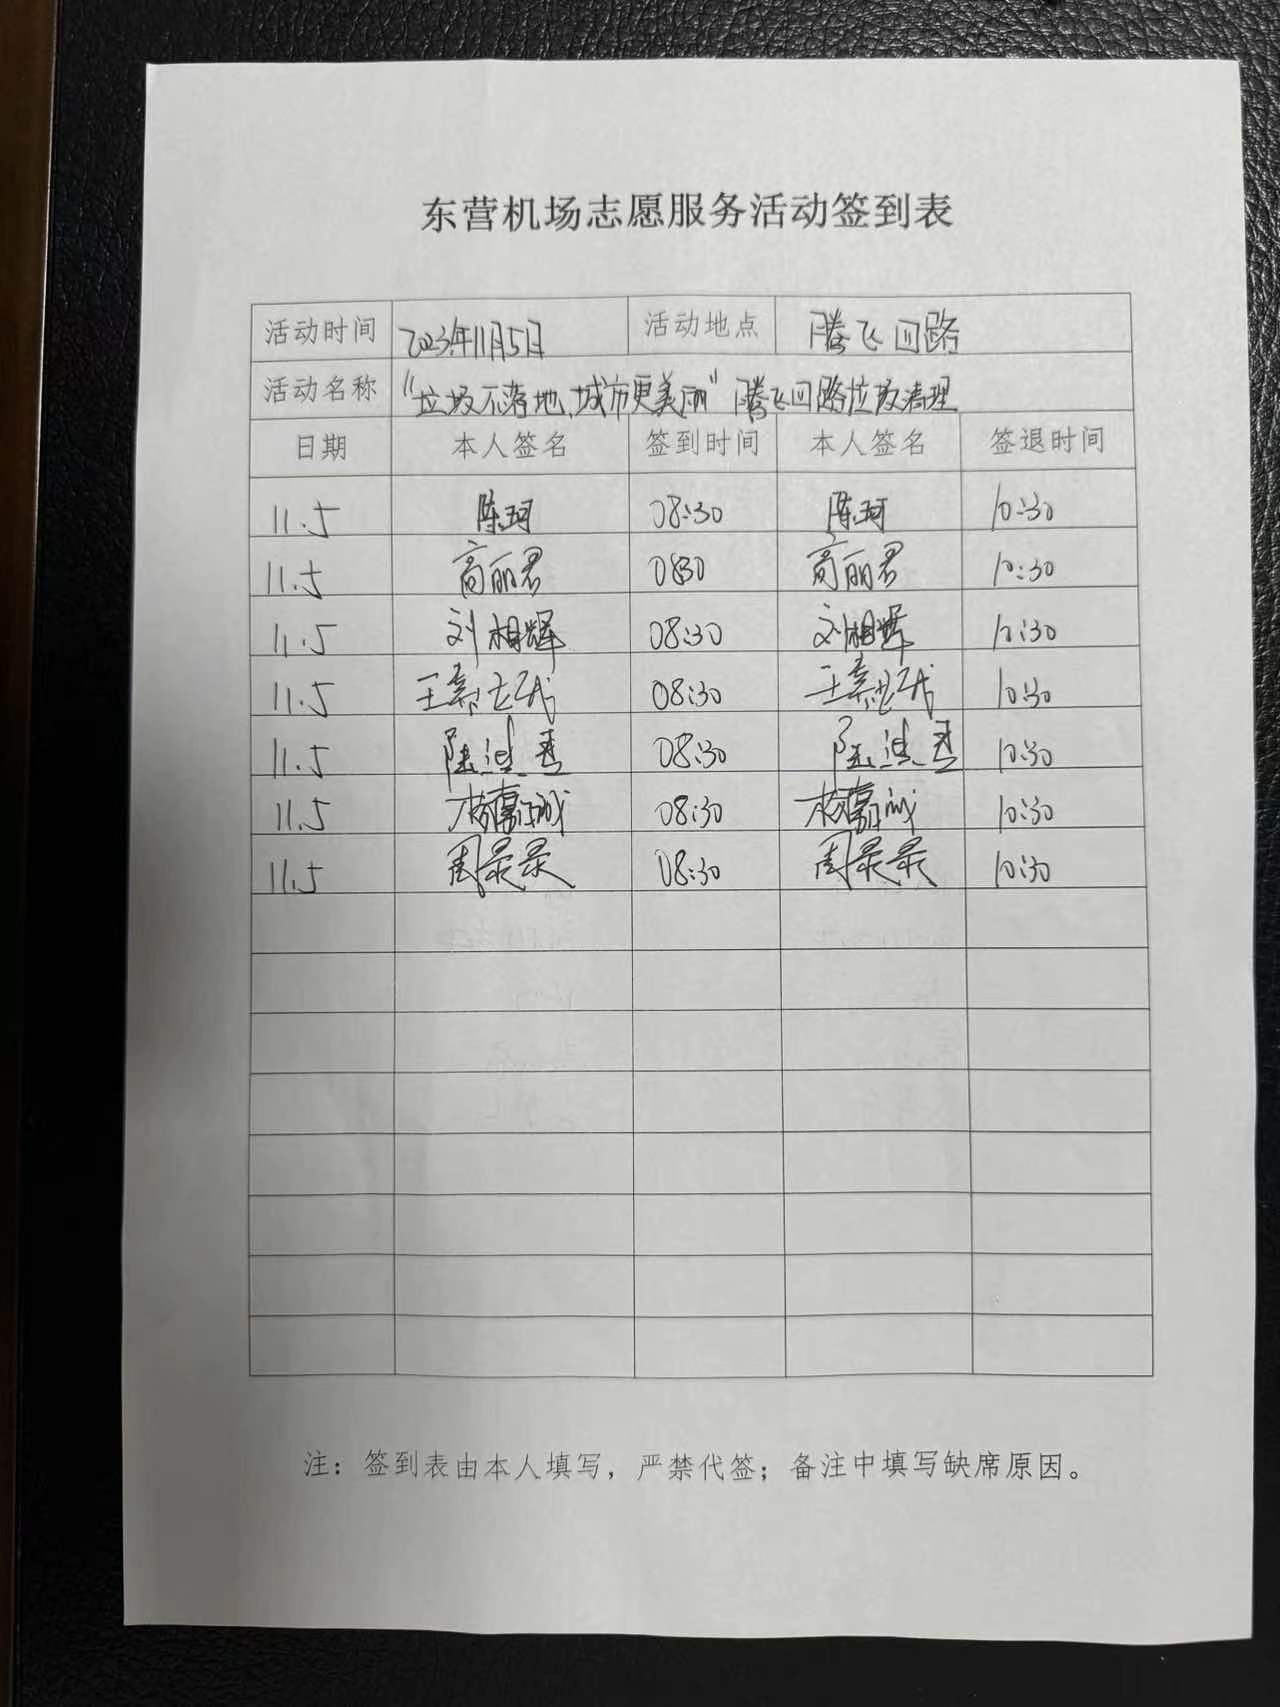 东营机场志愿服务活动签到表
活动时间 2023年11月5日 活动地点 腾飞回路
活动名称 "垃圾不落地,城市更美丽"腾飞回路垃圾清理
日期 本人签名 签到时间 本人签名 签退时间
11.5 陈珂 08:30 陈珂 10:30
11.5 高丽君 0830 高丽君 10:30
11.5 刘相辉 08:30 刘相辉 10:30
11.5 王 08:30 王 10:30
11.5 陆 08:30 陆 10:30
11.5 08:30 10:30
11.5 周录录 08:30 周录录 10:30
注：签到表由本人填写，严禁代签；备注中填写缺席原因。